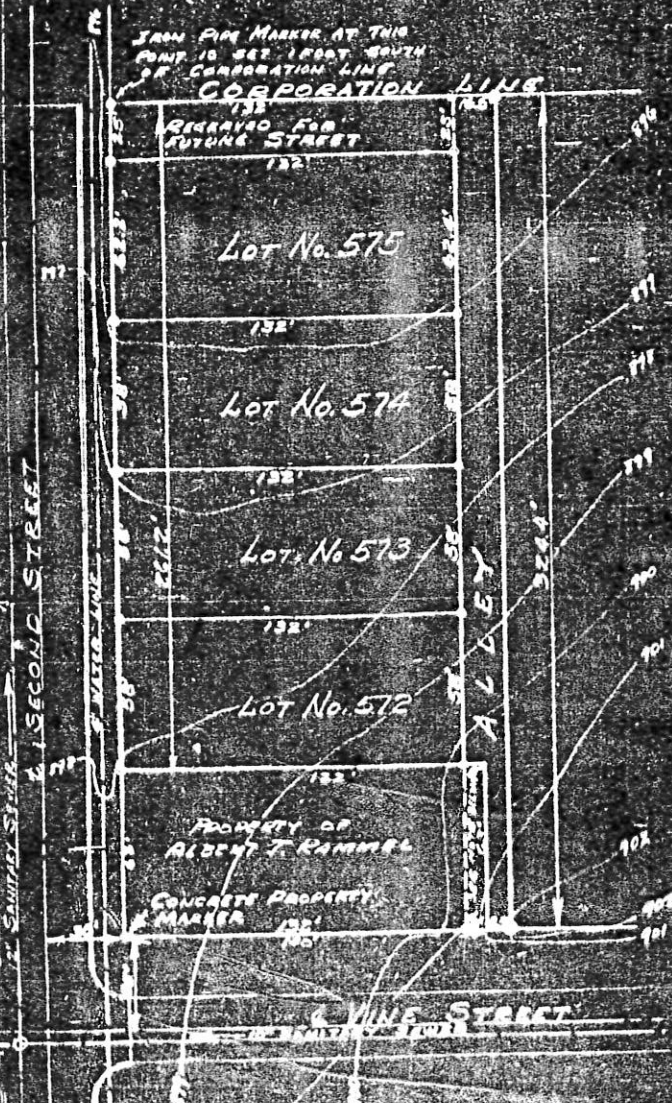 IRON PIPE MARKER AT THIS
POINT IS SET 1 FOOT SOUTH
OF CORPORATION LINE
CORPORATION LINE
132'
RESERVED FOR
FUTURE STREET
25'
25'
132'
LOT No. 575
62.4'
132'
LOT No. 574
58'
58'
132'
LOT No. 573
58'
58'
132'
LOT No. 572
58'
58'
132'
261.2'
324.4'
ALLEY
PROPERTY OF
ALBERT J. RAMMEL
CONCRETE PROPERTY
MARKER
132'
SECOND STREET
WATER LINE
SANITARY SEWER
VINE STREET
SANITARY SEWER
896
897
898
899
900
901
902
901